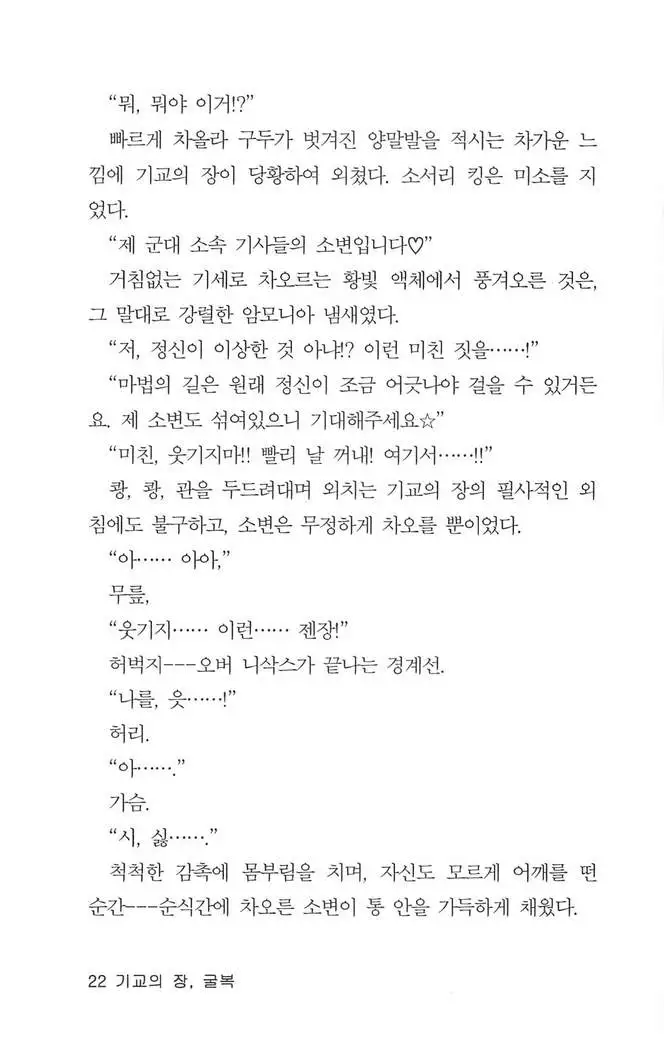 “뭐, 뭐야 이거!?”
빠르게 차올라 구두가 벗겨진 양말발을 적시는 차가운 느
낌에 기교의 장이 당황하여 외쳤다. 소서리 킹은 미소를 지
었다.
“제 군대 소속 기사들의 소변입니다♡”
거침없는 기세로 차오르는 황빛 액체에서 풍겨오른 것은,
그 말대로 강렬한 암모니아 냄새였다.
“저, 정신이 이상한 것 아냐!? 이런 미친 짓을……!”
“마법의 길은 원래 정신이 조금 어긋나야 걸을 수 있거든
요. 제 소변도 섞여있으니 기대해주세요☆”
“미친, 웃기지마!! 빨리 날 꺼내! 여기서……!!”
쾅, 쾅, 관을 두드려대며 외치는 기교의 장의 필사적인 외
침에도 불구하고, 소변은 무정하게 차오를 뿐이었다.
“아…… 아아,”
무릎,
“웃기지…… 이런…… 젠장!”
허벅지---오버 니삭스가 끝나는 경계선.
“나를, 읏……!”
허리.
“아…….”
가슴.
“시, 싫…….”
척척한 감촉에 몸부림을 치며, 자신도 모르게 어깨를 떤
순간---순식간에 차오른 소변이 통 안을 가득하게 채웠다.
22 기교의 장, 굴복